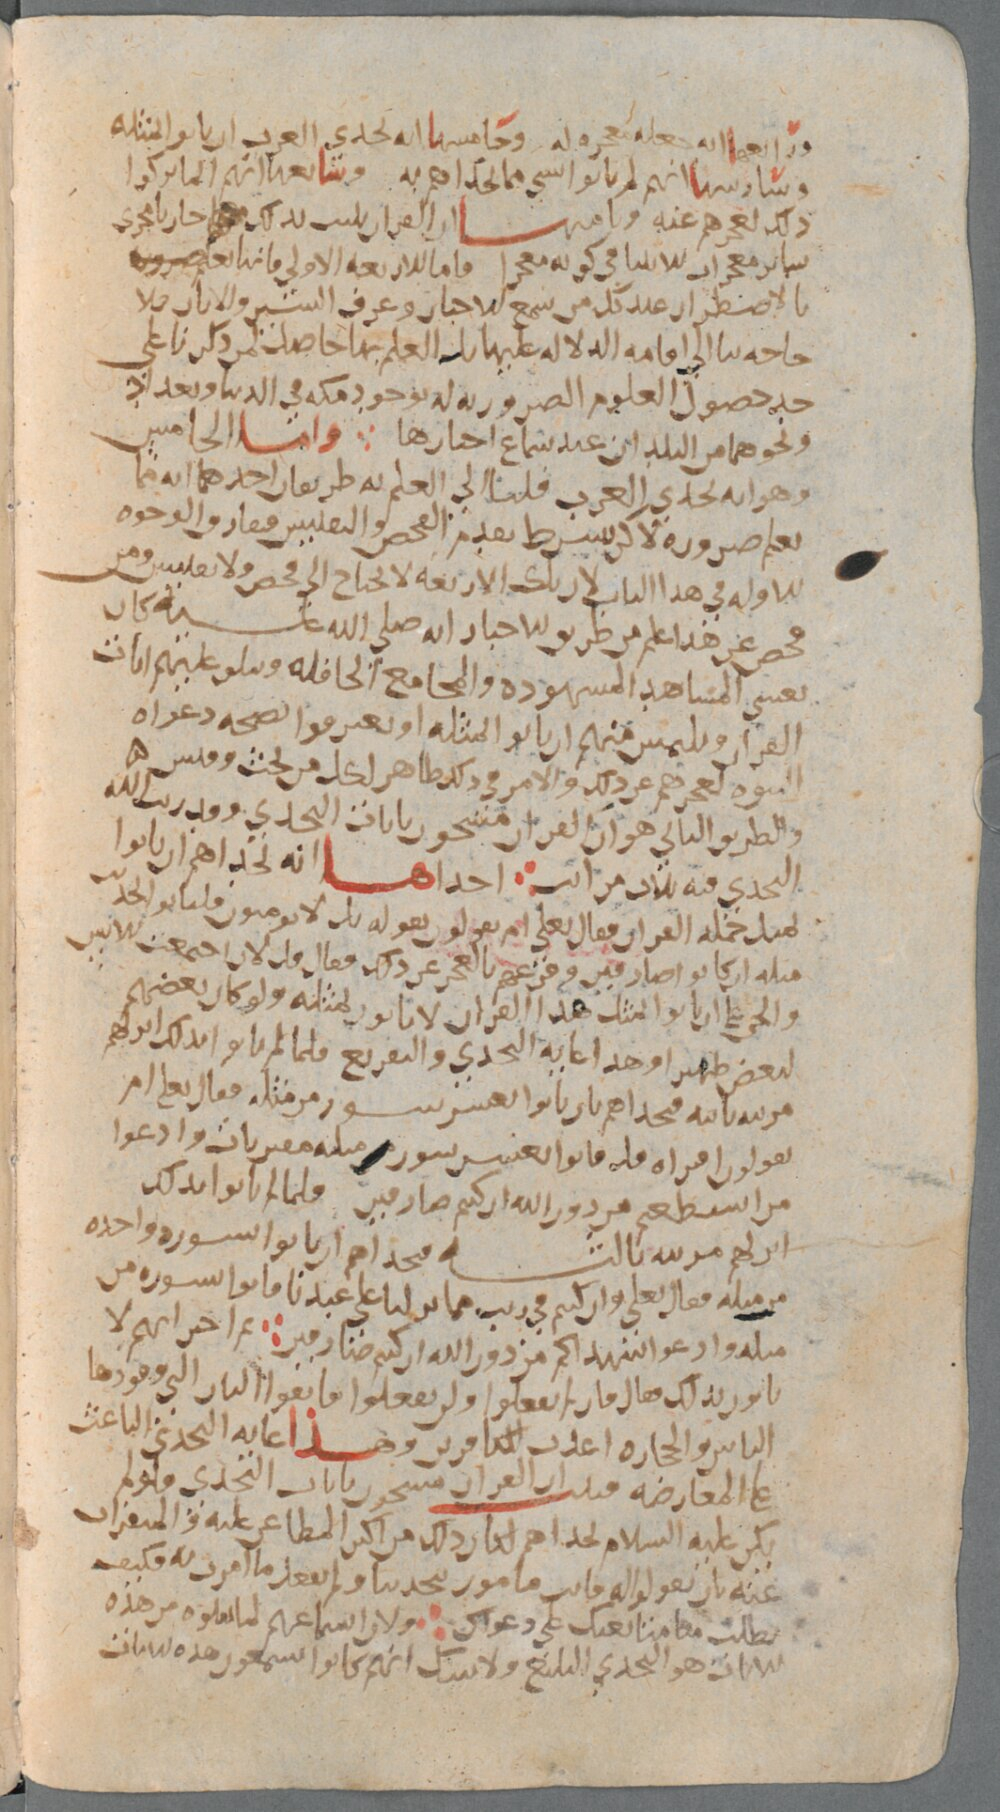 ورابعها انه جعله معجزه له وخامسها انه تحدى العرب ان ياتوا بمثله
وسادسها انهم لم ياتوا بشي مما تحداهم به وسابعها انهم انما تركوا
ذلك لعجزهم عنه وثامنها ان القران يثبت بذلك جاريا مجرى
ساير معجزات الانبيا في كونه معجزا فاما الاربعه الاولى فانها تعلم ضروره
بالاضطرار عند كل من سمع الاخبار وعرف السير والاثار فلا
حاجه بنا الى اقامه الدلاله عليها بل العلم بها حاصل لمن ذكرنا على
حد حصول العلوم الضروريه له بوجود مكه في الدنيا وبغداد
ونحوهما من البلدان عند سماع اخبارها واما الخامس
وهو انه تحدى العرب فلنا الى العلم به طريقان احدهما انه مما
يعلم ضروره لاكن بشرط تقدم الفحص والتفتيش ففارق الوجوه
الاوله في هذا الباب لان تلك الاربعه لا تحتاج الى فحص ولا تفتيش ومن
فحص عن هذا علم من طريق الاخبار انه صلى الله عليه كان
يغشى المشاهد المشهوده والمجامع الحافله ويتلو عليهم ايات
القران ويلتمس منهم ان ياتوا بمثله او يعترفوا بصحه دعواه
النبوه لعجزهم عن ذلك والامر في ذلك ظاهر لكل من بحث وفتش
والطريق الثاني هو ان القران مشحون بايات التحدي وقد رتب الله
التحدي فيه ثلاث مراتب احداها انه تحداهم ان ياتوا
بمثل جمله القران فقال تعلى ام يقولون تقوله بل لا يومنون فلياتوا بحديث
مثله ان كانوا صادقين وقرعهم بالعجز عن ذلك فقال قل لان اجتمعت الانس
والجن على ان ياتوا بمثل هذا القران لا ياتون بمثله ولو كان بعضهم
لبعض ظهيرا وهذا غايه التحدي والتقريع فلما لم ياتوا بذلك انزلهم
مرتبه ثانيه فتحداهم بان ياتوا بعشر سور من مثله فقال تعلى ام
يقولون افتراه قل فاتوا بعشر سور مثله مفتريات وادعوا
من استطعتم من دون الله ان كنتم صادقين فلما لم ياتوا بذلك
انزلهم مرتبه ثالثه فتحداهم ان ياتوا بسوره واحده
من مثله فقال تعلى وان كنتم في ريب مما نزلنا على عبدنا فاتوا بسوره من
مثله وادعوا شهداكم من دون الله ان كنتم صادقين ثم اخبر انهم لا
ياتون بذلك فقال فان لم تفعلوا ولن تفعلوا فاتقوا النار التي وقودها
الناس والحجاره اعدت للكافرين وهذا غايه التحدي الباعث
على المعارضه فثبت ان القران مشحون بايات التحدي فلو لم
يكن عليه السلام تحداهم لكان ذلك من اكبر المطاعن عليه والمنفرات
عنه بان يقولوا له فانت مامور بتحدينا ولم تفعل ما امرت به فكيف
تطلب منا متابعتك على دعواك ولان اسماعهم لما يتلوه من هذه
الايات هو التحدي البليغ ولا شك انهم كانوا يسمعون هذه الايات